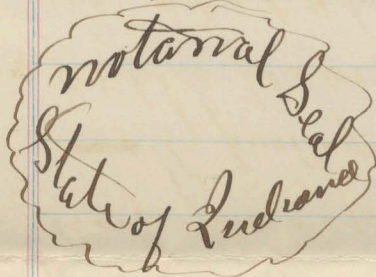 notarial Seal
State of Indiana